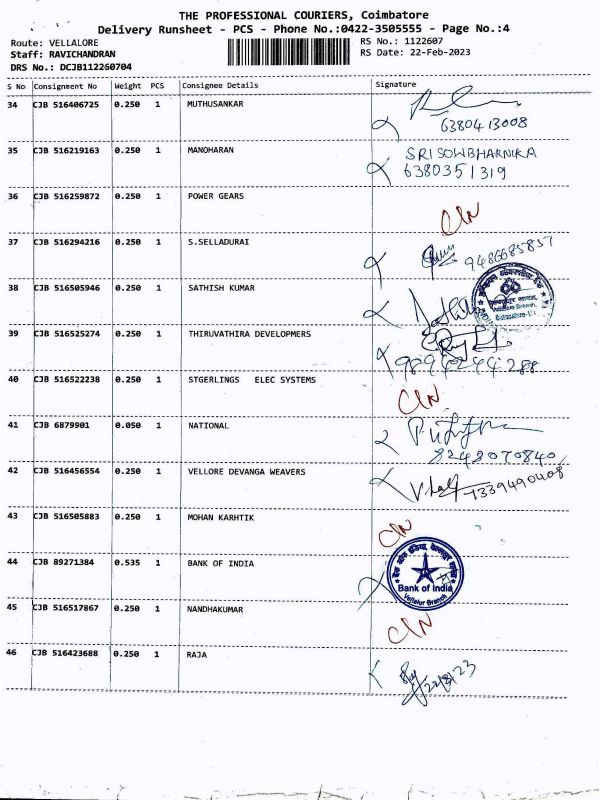 THE PROFESSIONAL COURIERS, Coimbatore
Delivery Runsheet - PCS - Phone No.:0422-3505555 - Page No.:4
Route: VELLALORE
RS No.: 1122607
Staff: RAVICHANDRAN
RS Date: 22-Feb-2023
DRS No.: DCJB112260704
S No Consignment No Weight PCS Consignee Details Signature
34 CJB 516406725 0.250 1 MUTHUSANKAR
6380413008
35 CJB 516219163 0.250 1 MANOHARAN SRI SOWBHARNIKA
6380351319
36 CJB 516259872 0.250 1 POWER GEARS
C/N
37 CJB 516294216 0.250 1 S.SELLADURAI
9486685857
38 CJB 516505946 0.250 1 SATHISH KUMAR
39 CJB 516525274 0.250 1 THIRUVATHIRA DEVELOPMERS
9894244288
40 CJB 516522238 0.250 1 STGERLINGS ELEC SYSTEMS
C/N
41 CJB 6879901 0.050 1 NATIONAL
8248070840
42 CJB 516456554 0.250 1 VELLORE DEVANGA WEAVERS
7339490408
43 CJB 516505883 0.250 1 MOHAN KARHTIK
C/N
44 CJB 89271384 0.535 1 BANK OF INDIA
Bank of India
Vellalur Branch
45 CJB 516517867 0.250 1 NANDHAKUMAR
C/N
46 CJB 516423688 0.250 1 RAJA
22/2/23